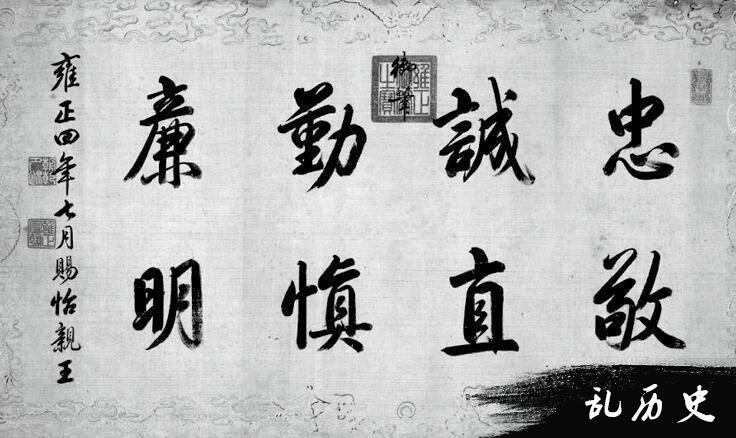 忠敬
誠直
勤慎
廉明
御筆
雍正四年七月賜怡親王
雍正之寶
乱历史